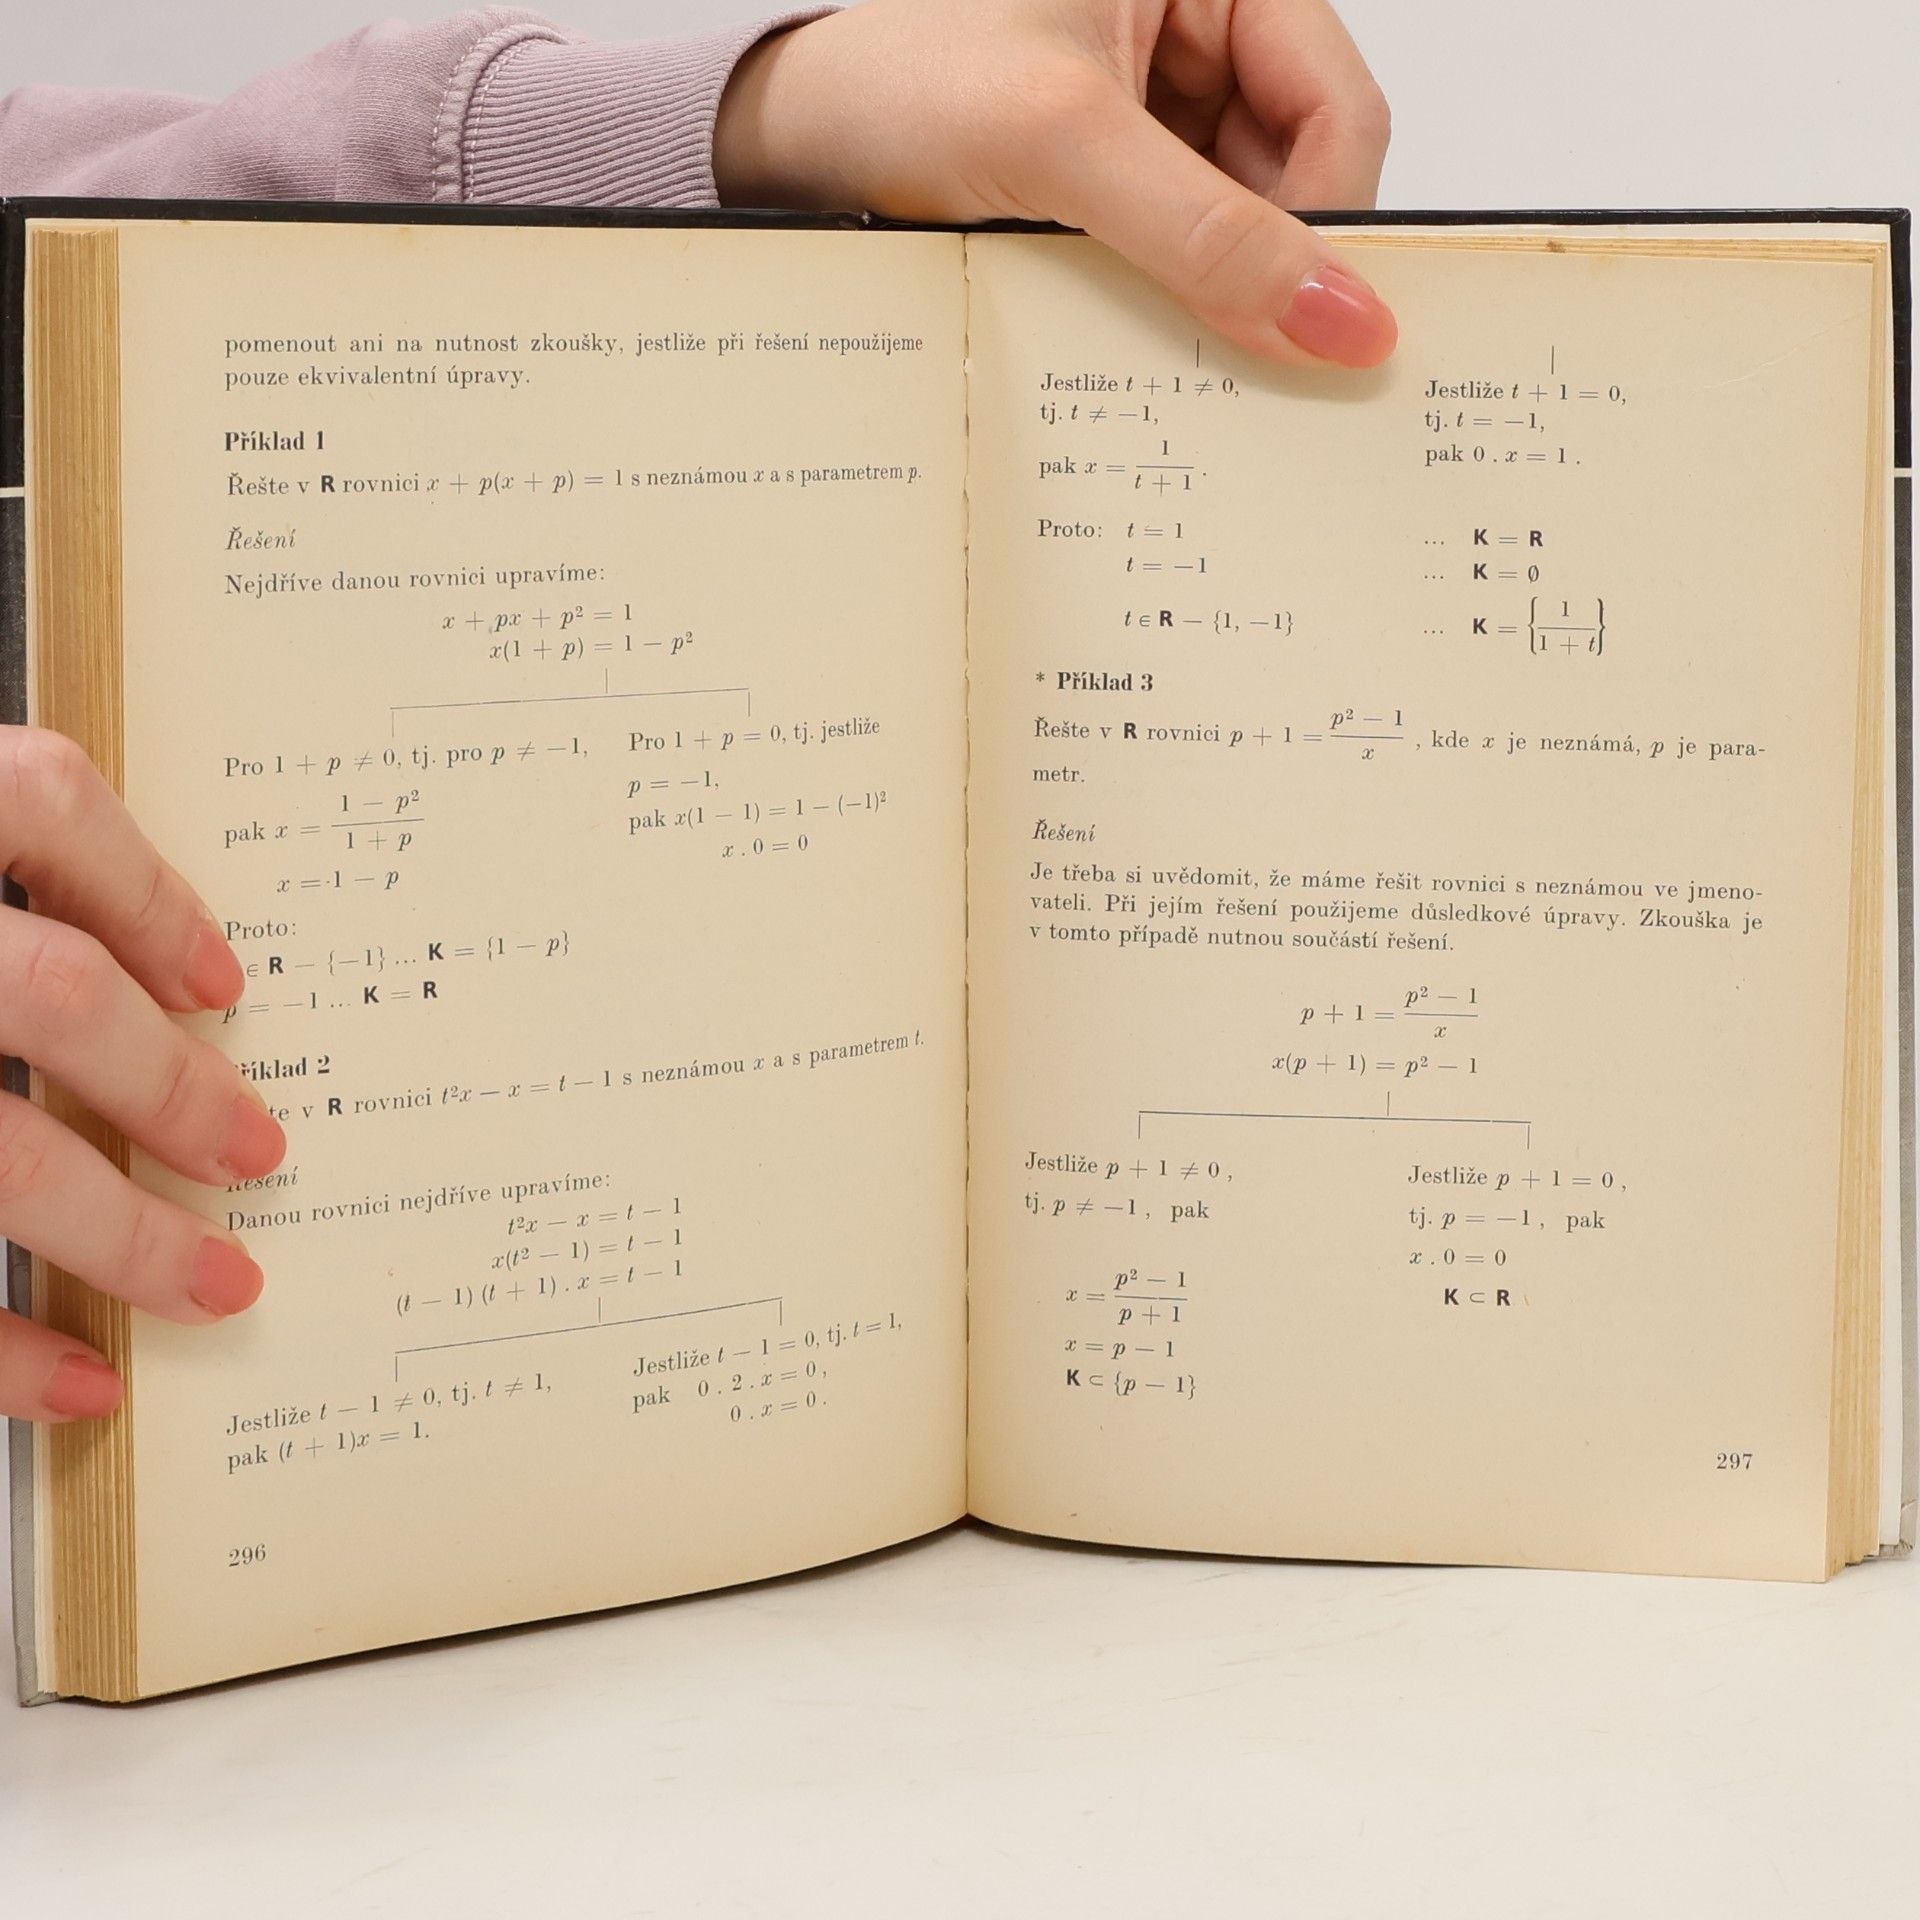 pomenout ani na nutnost zkoušky, jestliže při řešení nepoužijeme
pouze ekvivalentní úpravy.
Příklad 1
Řešte v R rovnici x + p(x + p) = 1 s neznámou x a s parametrem p.
Řešení
Nejdříve danou rovnici upravíme:
x + px + p² = 1
x(1 + p) = 1 − p²
Pro 1 + p ≠ 0, tj. pro p ≠ −1,
pak x = (1 − p²)/(1 + p)
x = 1 − p
Pro 1 + p = 0, tj. jestliže
p = −1,
pak x(1 − 1) = 1 − (−1)²
x . 0 = 0
Proto:
∈ R − {−1} ... K = {1 − p}
p = −1 ... K = R
říklad 2
te v R rovnici t²x − x = t − 1 s neznámou x a s parametrem t.
Řešení
Danou rovnici nejdříve upravíme:
t²x − x = t − 1
x(t² − 1) = t − 1
(t − 1) (t + 1) . x = t − 1
Jestliže t − 1 ≠ 0, tj. t ≠ 1,
pak (t + 1)x = 1.
Jestliže t − 1 = 0, tj. t = 1,
pak 0 . 2 . x = 0,
0 . x = 0.
296
Jestliže t + 1 ≠ 0,
tj. t ≠ −1,
pak x = 1/(t + 1) .
Jestliže t + 1 = 0,
tj. t = −1,
pak 0 . x = 1 .
Proto: t = 1 ... K = R
t = −1 ... K = ∅
t ∈ R − {1, −1} ... K = {1/(1 + t)}
* Příklad 3
Řešte v R rovnici p + 1 = (p² − 1)/x , kde x je neznámá, p je para-
metr.
Řešení
Je třeba si uvědomit, že máme řešit rovnici s neznámou ve jmeno-
vateli. Při jejím řešení použijeme důsledkové úpravy. Zkouška je
v tomto případě nutnou součástí řešení.
p + 1 = (p² − 1)/x
x(p + 1) = p² − 1
Jestliže p + 1 ≠ 0 ,
tj. p ≠ −1 , pak
x = (p² − 1)/(p + 1)
x = p − 1
K ⊂ {p − 1}
Jestliže p + 1 = 0 ,
tj. p = −1 , pak
x . 0 = 0
K ⊂ R
297